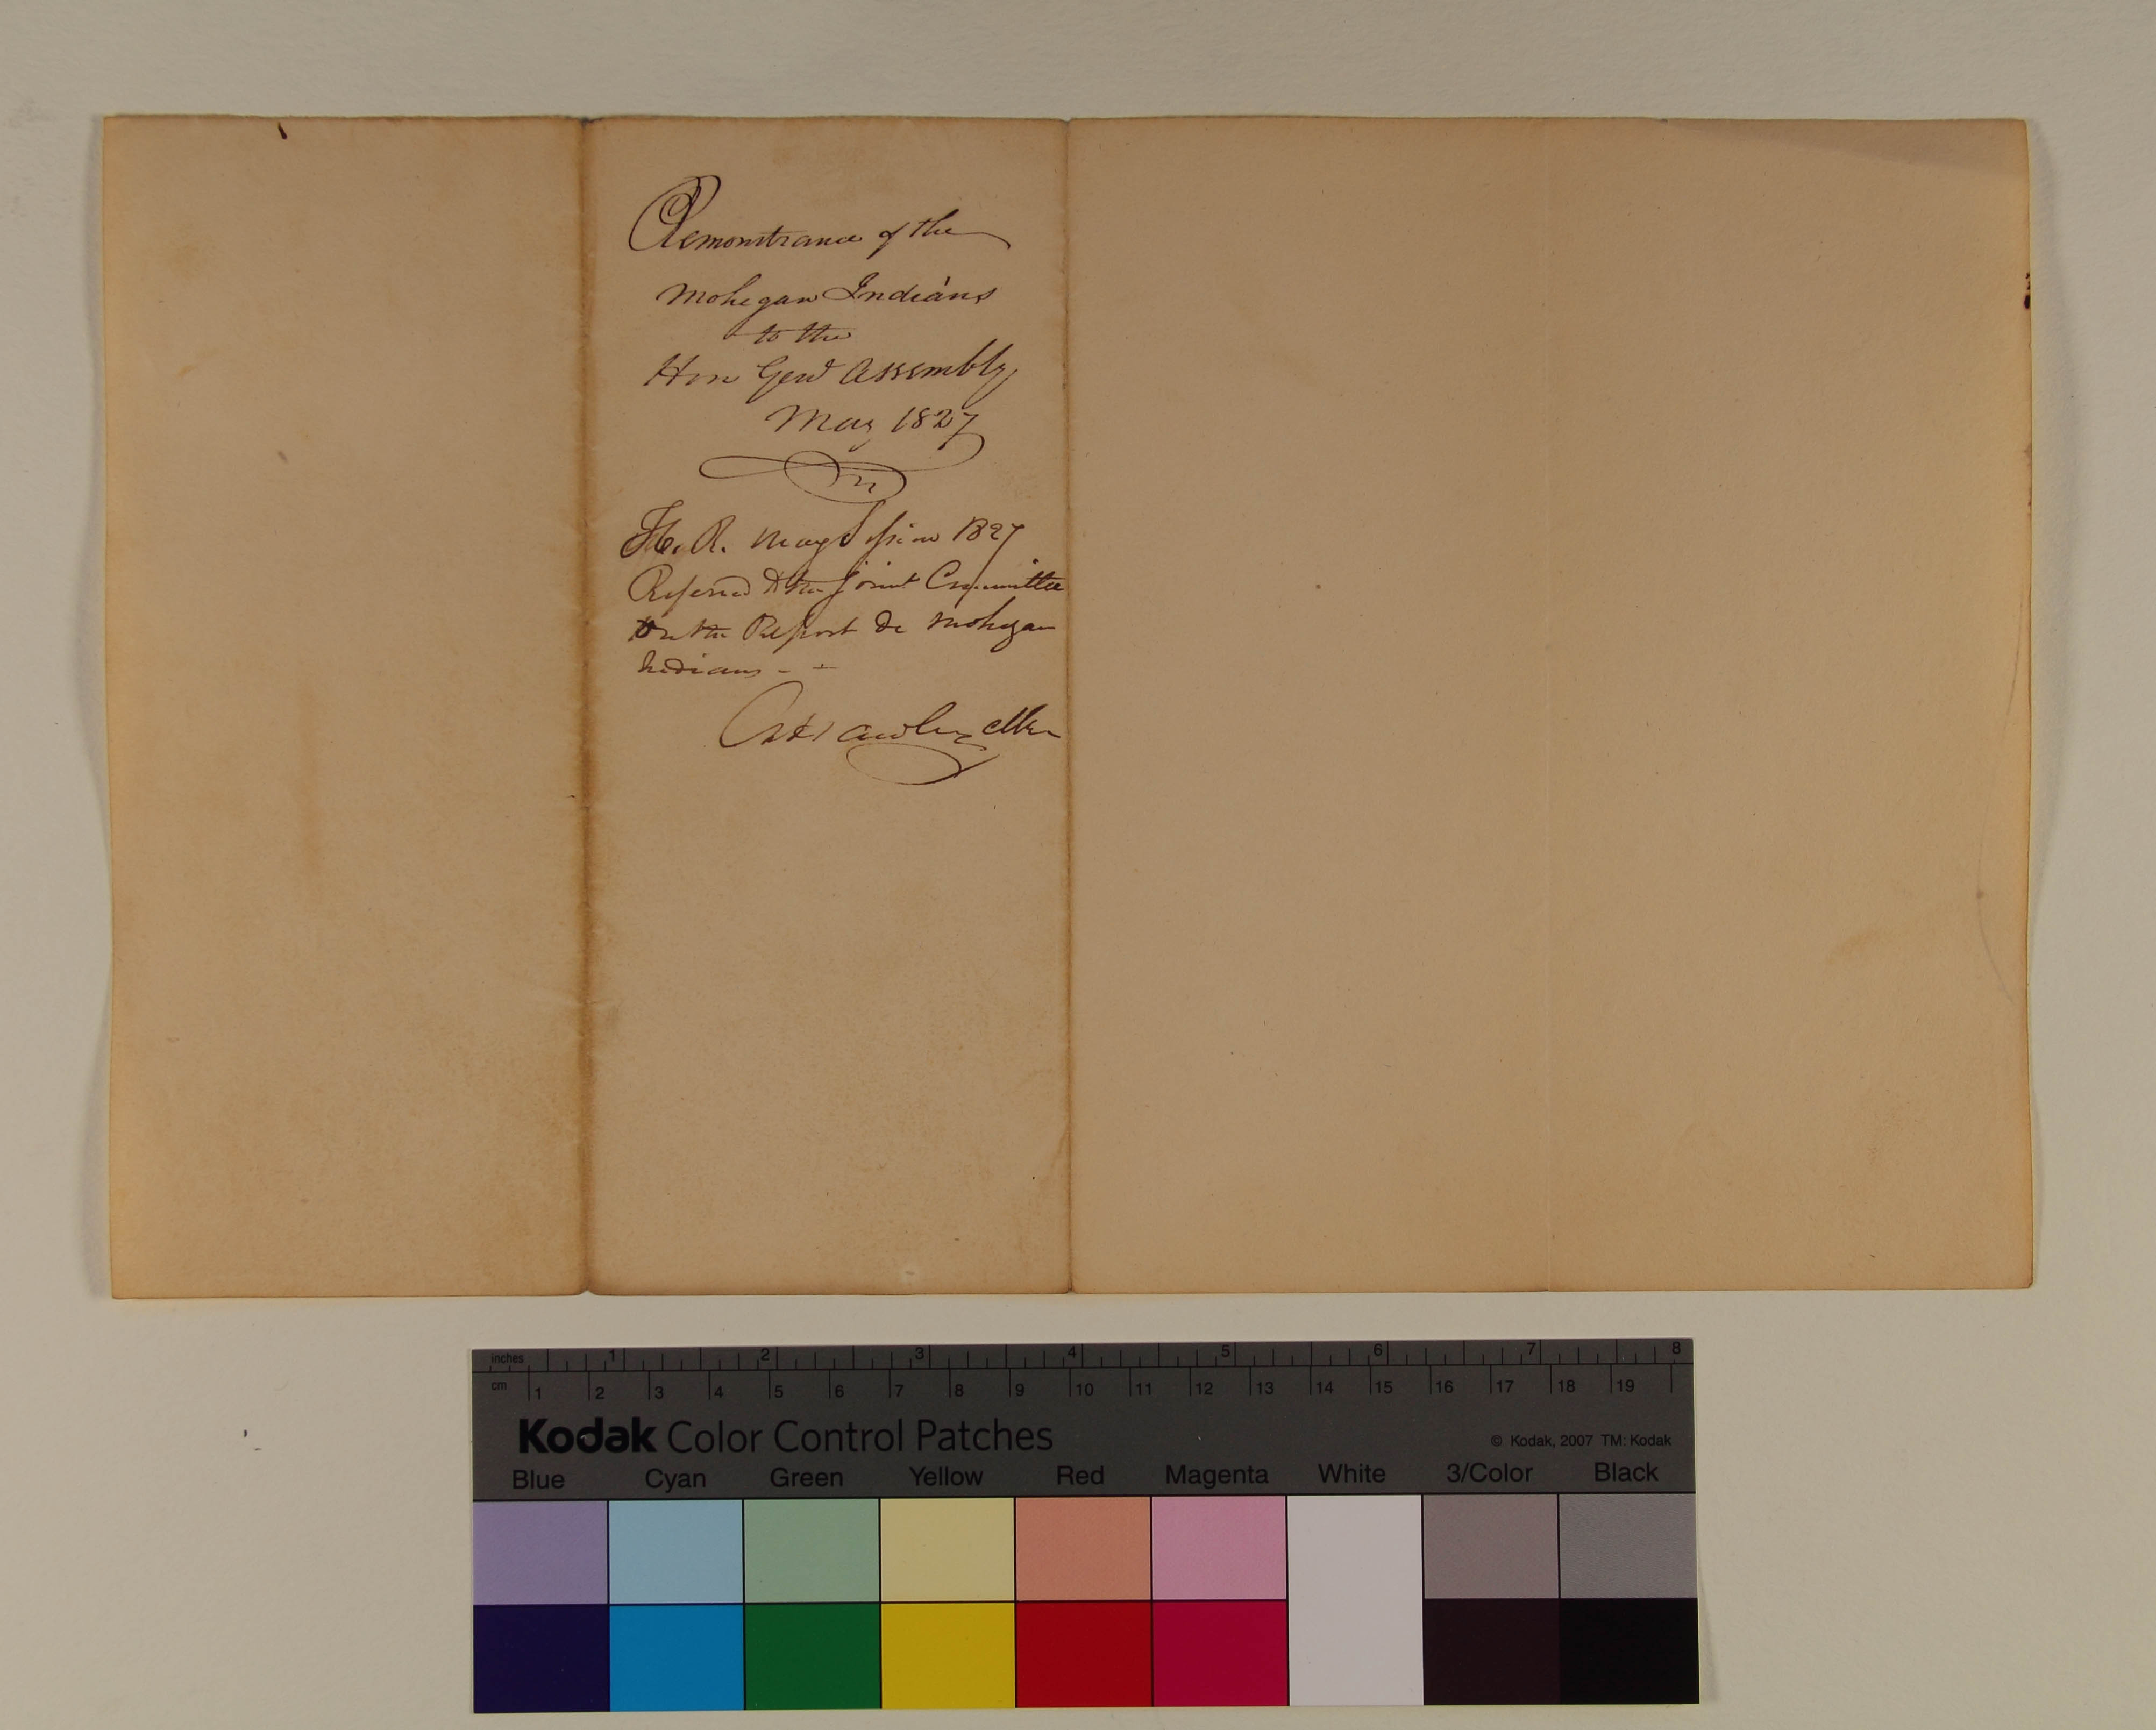 Remonstrance of the
Mohegan Indians
to the
Hon Genl Assembly
May 1827
H. R. May Session 1827
Referred to the Joint Committee
on the Report &c Mohegan
Indians - -
Hawley Clk
inches 1 2 3 4 5 6 7 8
cm 1 2 3 4 5 6 7 8 9 10 11 12 13 14 15 16 17 18 19
Kodak Color Control Patches
© Kodak, 2007 TM: Kodak
Blue Cyan Green Yellow Red Magenta White 3/Color Black